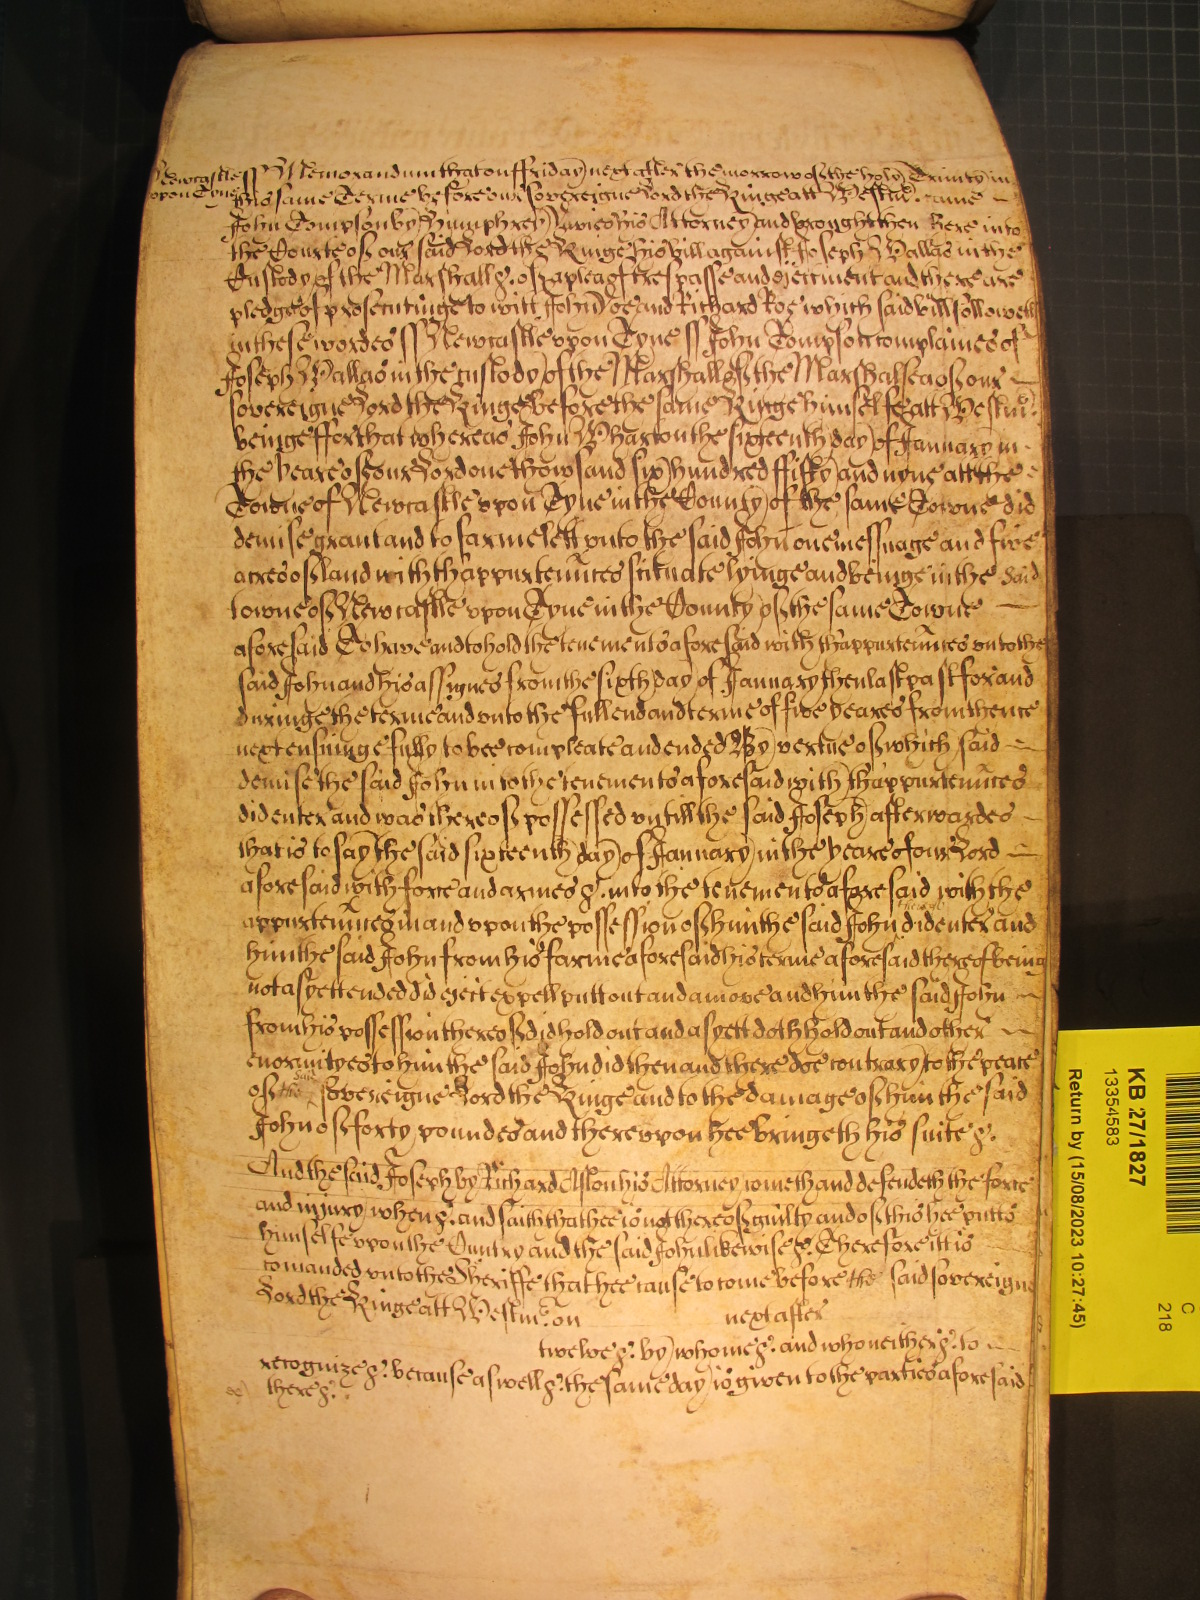 Newcastle ss Memorandum that on ffriday next after the morrow of the holy Trinity in
upon Tyne this same Terme before our sovereigne Lord the Kinge att Westm̃ came
John Tompson by Humphrey his Attorney and brought then here into
the Courte of our said Lord the Kinge his bill against Joseph Wallas in the
Custody of the Marshall &c. of a plea of trespasse and ejectment and there are
pledges of prosecutinge to witt John Doe and Richard Roe which said bill followeth
in these wordes ss Newcastle upon Tyne ss John Tompson complaines of
Joseph Wallas in the custody of the Marshall of the Marshalsea of our
sovereigne Lord the Kinge before the same Kinge himselfe att Westm̃.
beinge ffor that whereas John Wharton the sixteenth day of January in
the yeare of our Lord one thowsand six hundred fifty and nyne att the
Towne of Newcastle upon Tyne in the County of the same Towne did
demise grant and to farme lett unto the said John one messuage and five
acres of land with th'appurteñnces scituate lyinge and beinge in the said
towne of Newcastle upon Tyne in the County of the same Towne
aforesaid To have and to hold the tenements aforesaid with th'appurteñnces unto the
said John and his assignes from the sixth day of January then last past for and
duringe the terme and unto the full end and terme of five yeares from thence
next ensuinge fully to bee compleate and ended By vertue of which said
demise the said John into the tenements aforesaid with th'appurteñnces
did enter and was thereof possessed untill the said Joseph afterwardes
that is to say the said sixteenth day of January in the yeare of our Lord
aforesaid with force and armes &c. into the tenements aforesaid with the
appurteñnces in and upon the possession of him the said John did enter and
him the said John from his farme aforesaid his terme aforesaid thereof being
not as yett ended did eject expell putt out and amove and him the said John
from his possession thereof did hold out and as yett doth hold out and other
enormityes to him the said John did then and there doe contrary to the peace
of the said Sovereigne Lord the Kinge and to the damage of him the said
John of forty poundes and thereupon hee bringeth his suite &c.
And the said Joseph by Richard Aston his Attorney cometh and defendeth the force
and injury when &c. and saith that hee is not thereof guilty and of this hee putts
himselfe upon the Cuntry and the said John likewise &c. Therefore itt is
comanded unto the Sheriffe that hee cause to come before the said sovereigne
Lord the Kinge att Westm̃. on next after
twelve &c. by whome &c. and who neither &c. to
recognize &c. because aswell &c. the same day is given to the parties aforesaid
there &c.
KB 27/1827
13354583
Return by (15/08/2023 10:27:45)
C
218